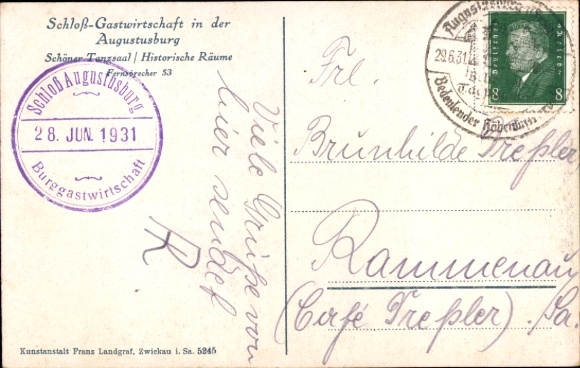 Schloß-Gastwirtschaft in der
Augustusburg
Schöner Tanzsaal / Historische Räume
Fernsprecher 53
Schloß Augustusburg
28. JUN. 1931
Burggastwirtschaft
Viele Grüße von
hier sendet
R
29.6.31
Bedeutender Höhenkurort
Deutsches Reich
8 8
Frl.
Brunhilde Treßler
Rammenau
(Café Treßler) Sa.
Kunstanstalt Franz Landgraf, Zwickau i. Sa. 5245